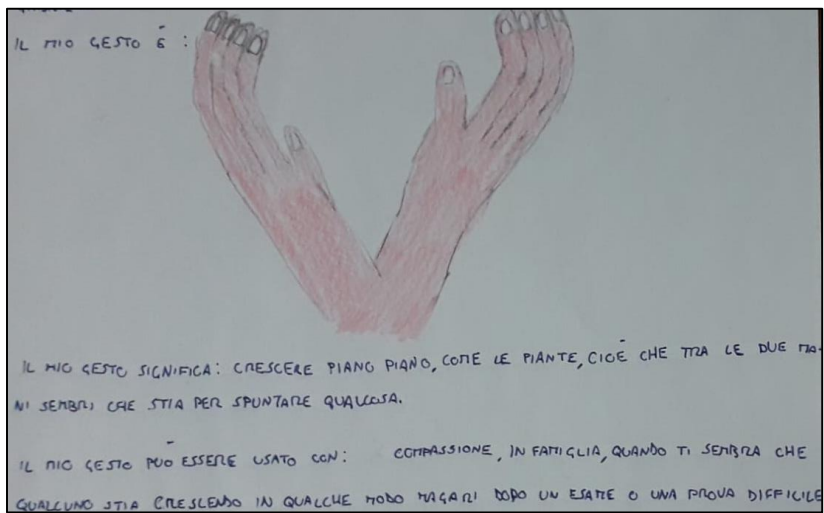 IL MIO GESTO È :
IL MIO GESTO SIGNIFICA: CRESCERE PIANO PIANO, COME LE PIANTE, CIOÈ CHE TRA LE DUE MA-
NI SEMBRI CHE STIA PER SPUNTARE QUALCOSA.
IL MIO GESTO PUÒ ESSERE USATO CON: COMPASSIONE, IN FAMIGLIA, QUANDO TI SEMBRA CHE
QUALCUNO STIA CRESCENDO IN QUALCHE MODO MAGARI DOPO UN ESAME O UNA PROVA DIFFICILE